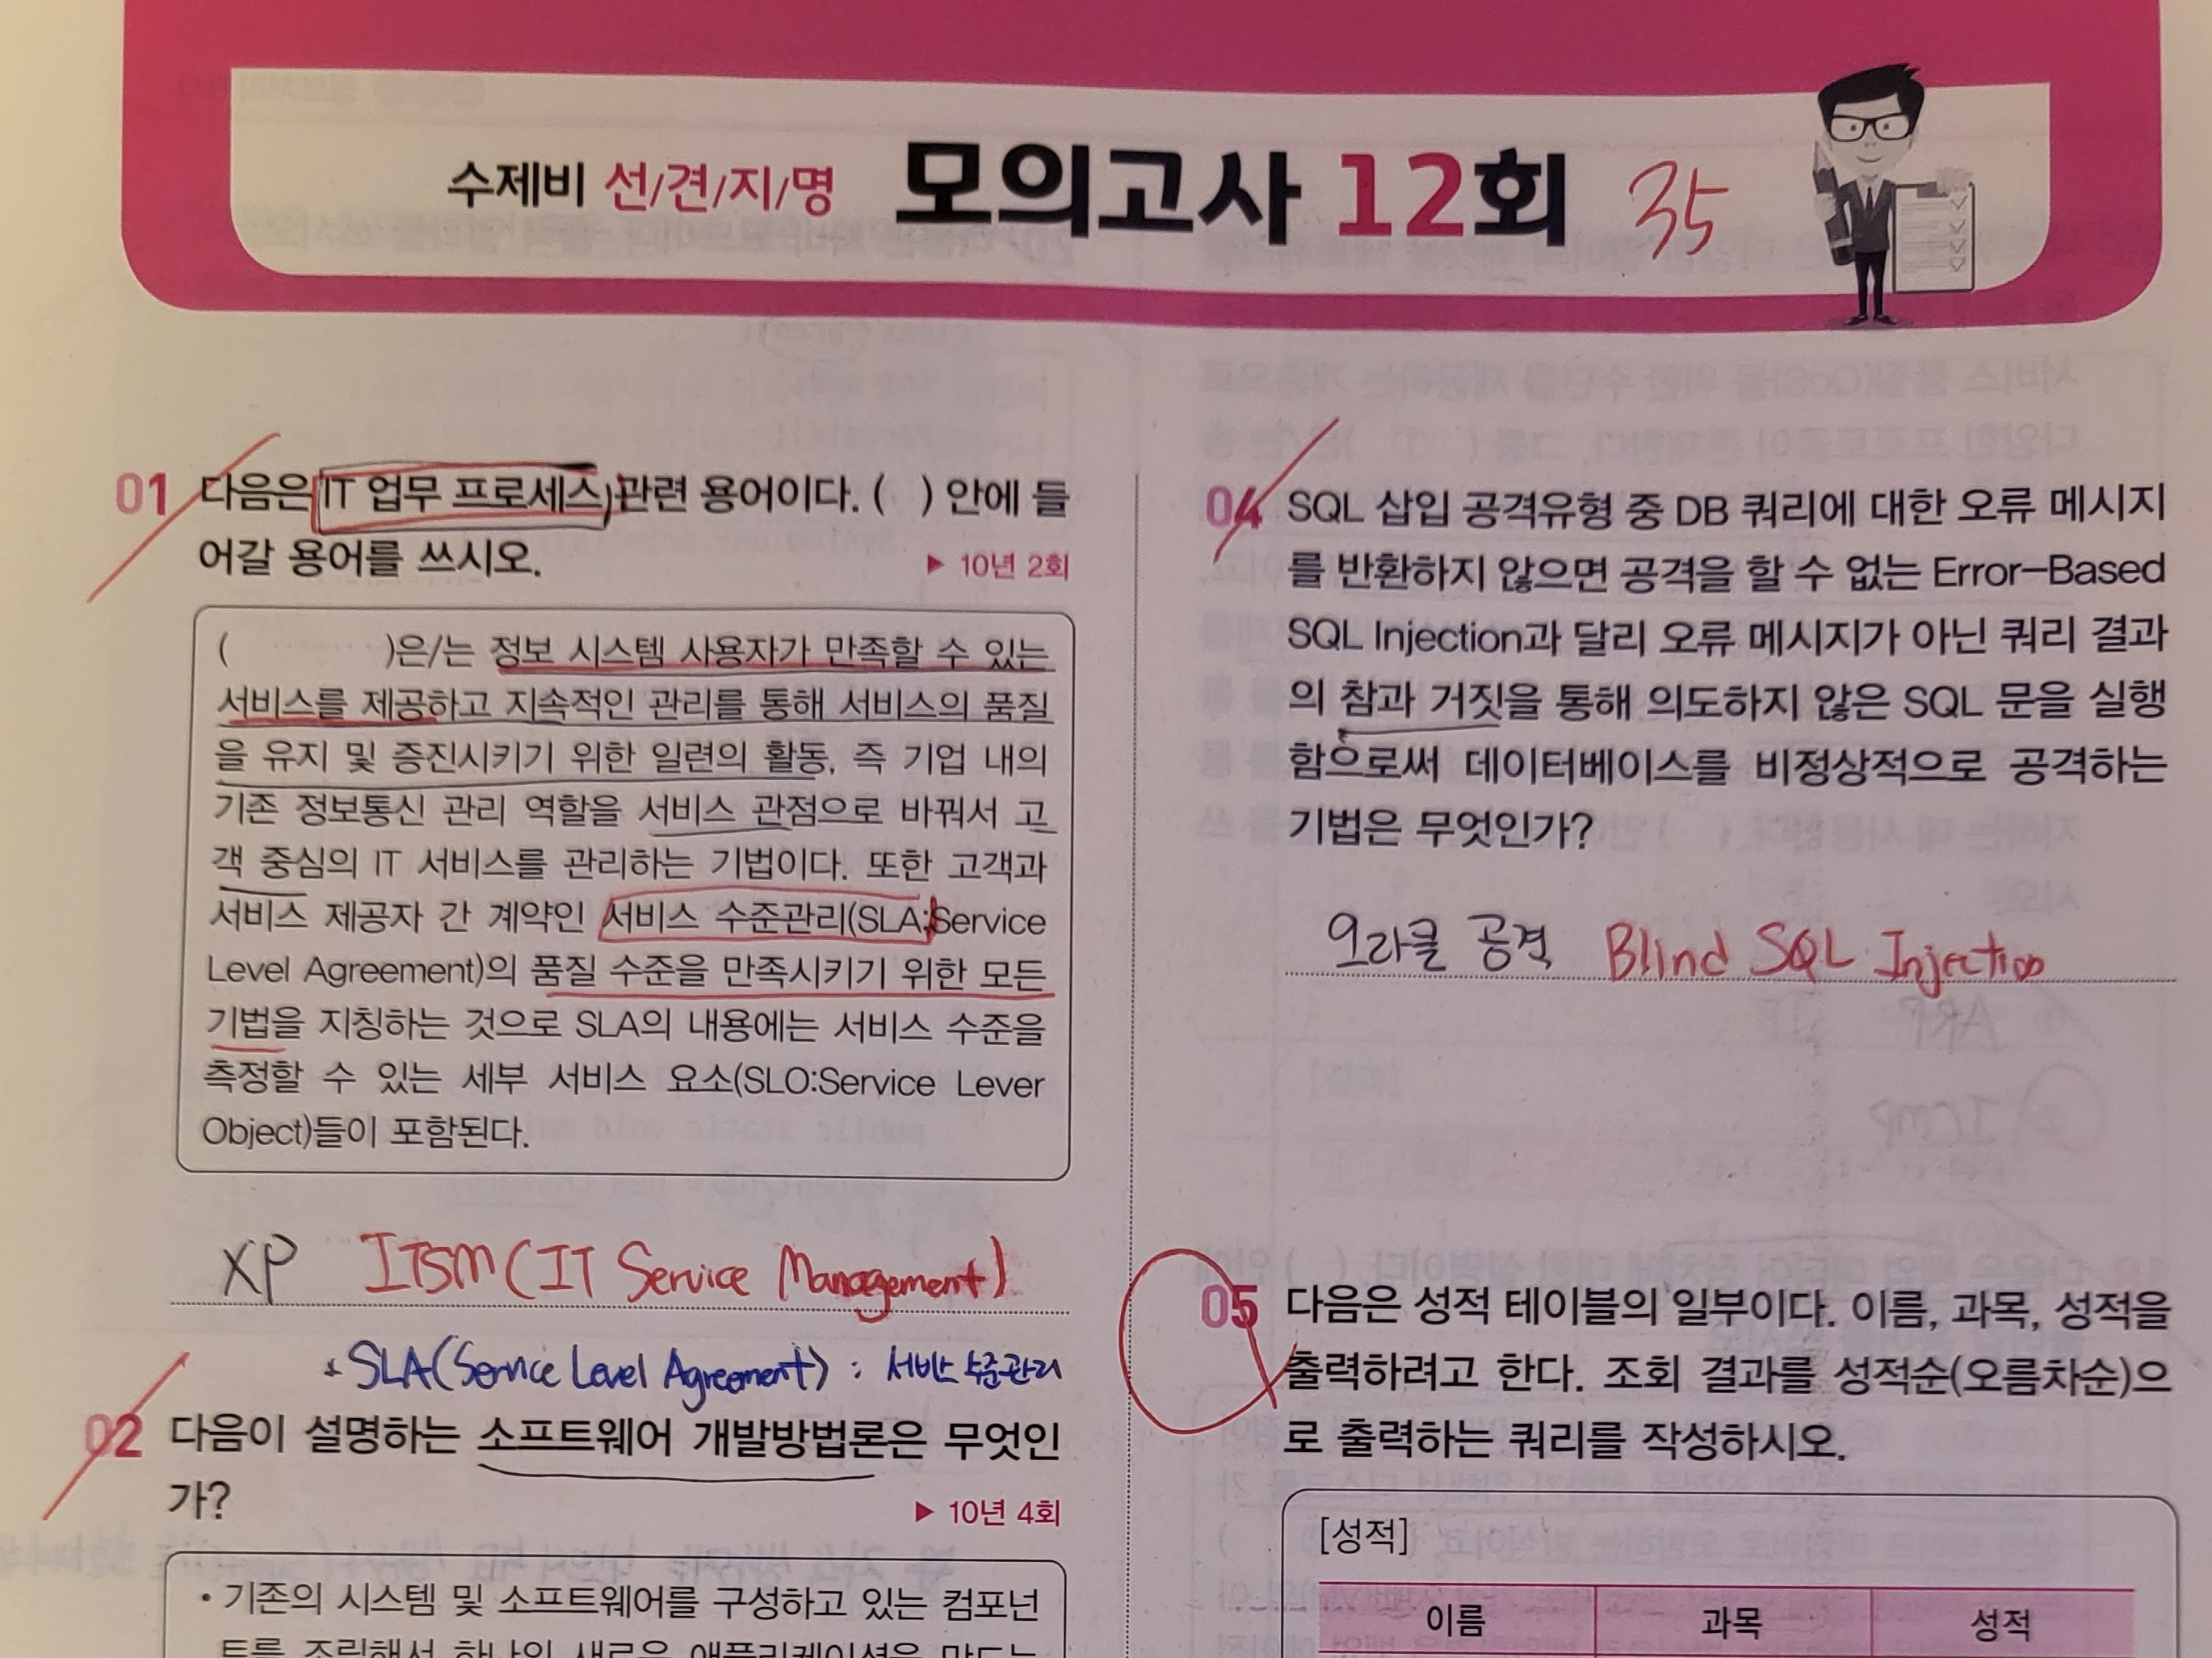 수제비 선/견/지/명 모의고사 12회 35
01 다음은 IT 업무 프로세스 관련 용어이다. ( ) 안에 들
어갈 용어를 쓰시오.
▶ 10년 2회
( )은/는 정보 시스템 사용자가 만족할 수 있는
서비스를 제공하고 지속적인 관리를 통해 서비스의 품질
을 유지 및 증진시키기 위한 일련의 활동, 즉 기업 내의
기존 정보통신 관리 역할을 서비스 관점으로 바꿔서 고
객 중심의 IT 서비스를 관리하는 기법이다. 또한 고객과
서비스 제공자 간 계약인 서비스 수준관리(SLA:Service
Level Agreement)의 품질 수준을 만족시키기 위한 모든
기법을 지칭하는 것으로 SLA의 내용에는 서비스 수준을
측정할 수 있는 세부 서비스 요소(SLO:Service Lever
Object)들이 포함된다.
XP ITSM(IT Service Management)
* SLA(Service Level Agreement) : 서비스 수준관리
02 다음이 설명하는 소프트웨어 개발방법론은 무엇인
가?
▶ 10년 4회
• 기존의 시스템 및 소프트웨어를 구성하고 있는 컴포넌
트를 조립해서 하나의 새로운 애플리케이션을 만드는
04 SQL 삽입 공격유형 중 DB 쿼리에 대한 오류 메시지
를 반환하지 않으면 공격을 할 수 없는 Error-Based
SQL Injection과 달리 오류 메시지가 아닌 쿼리 결과
의 참과 거짓을 통해 의도하지 않은 SQL 문을 실행
함으로써 데이터베이스를 비정상적으로 공격하는
기법은 무엇인가?
오라클 공격 Blind SQL Injection
05 다음은 성적 테이블의 일부이다. 이름, 과목, 성적을
출력하려고 한다. 조회 결과를 성적순(오름차순)으
로 출력하는 쿼리를 작성하시오.
[성적]
이름 과목 성적